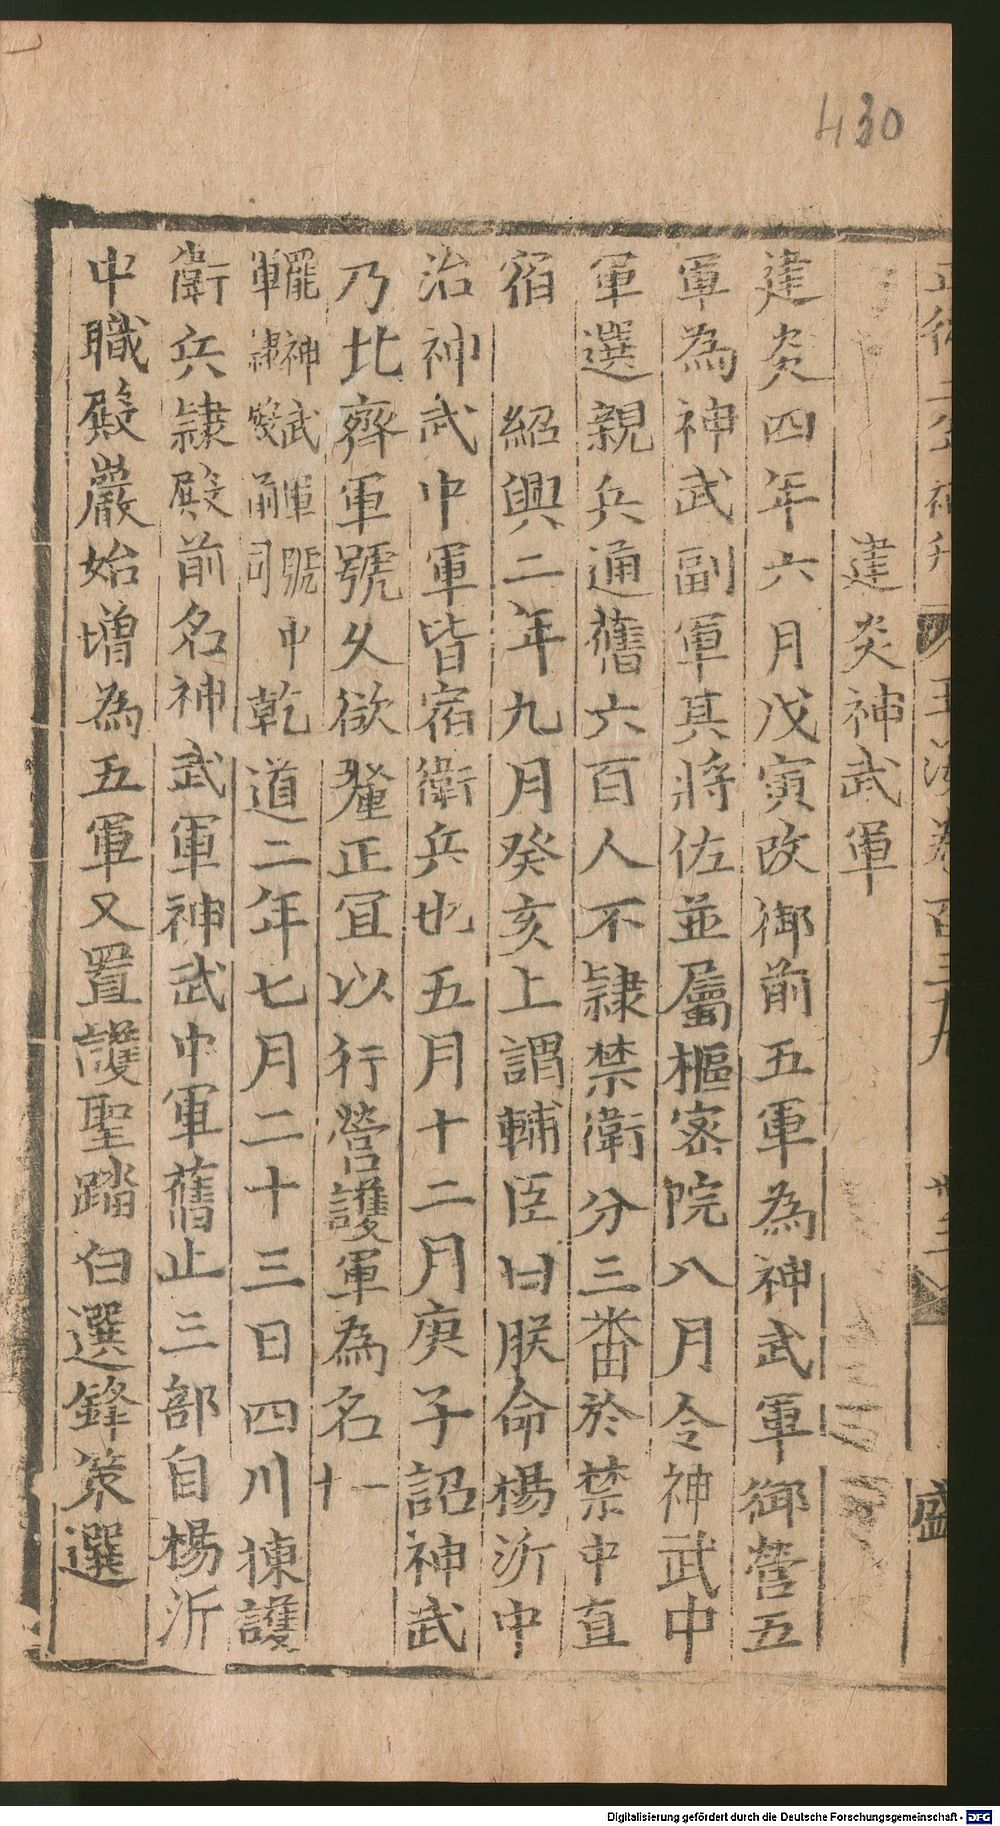 430
建炎神武軍
建炎四年六月戊寅改御前五軍為神武軍御營五
軍為神武副軍其將佐並屬樞密院八月令神武中
軍選親兵通舊六百人不隷禁衛分三番於禁中直
宿 紹興二年九月癸亥上謂輔臣曰朕命楊沂中
治神武中軍皆宿衛兵也五月十二月庚子詔神武
乃北齊軍號久欲釐正宜以行營護軍為名十一
罷神武軍號中
軍隷殿前司
乾道二年七月二十三日四川揀護
衛兵隷殿前名神武軍神武中軍舊止三部自楊沂
中職殿嚴始增為五軍又置護聖踏白選鋒策選
盛
Digitalisierung gefördert durch die Deutsche Forschungsgemeinschaft - DFG